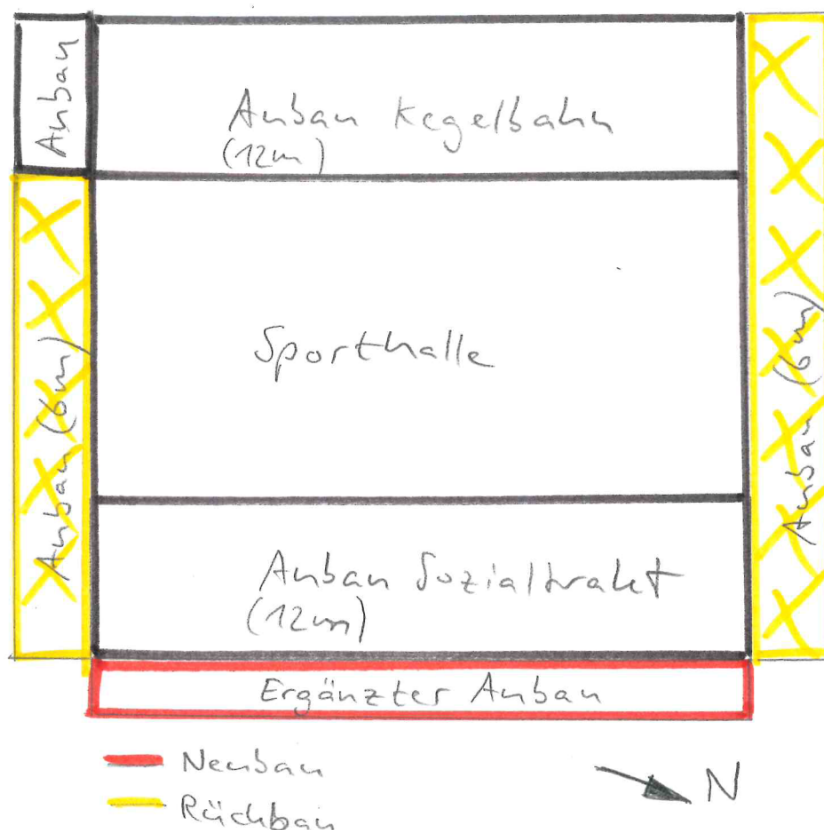 Anbau
Anbau Kegelbahn
(12m)
Sporthalle
Anbau (6m)
Anbau (6m)
Anbau Sozialtrakt
(12m)
Ergänzter Anbau
Neubau
Rückbau
N